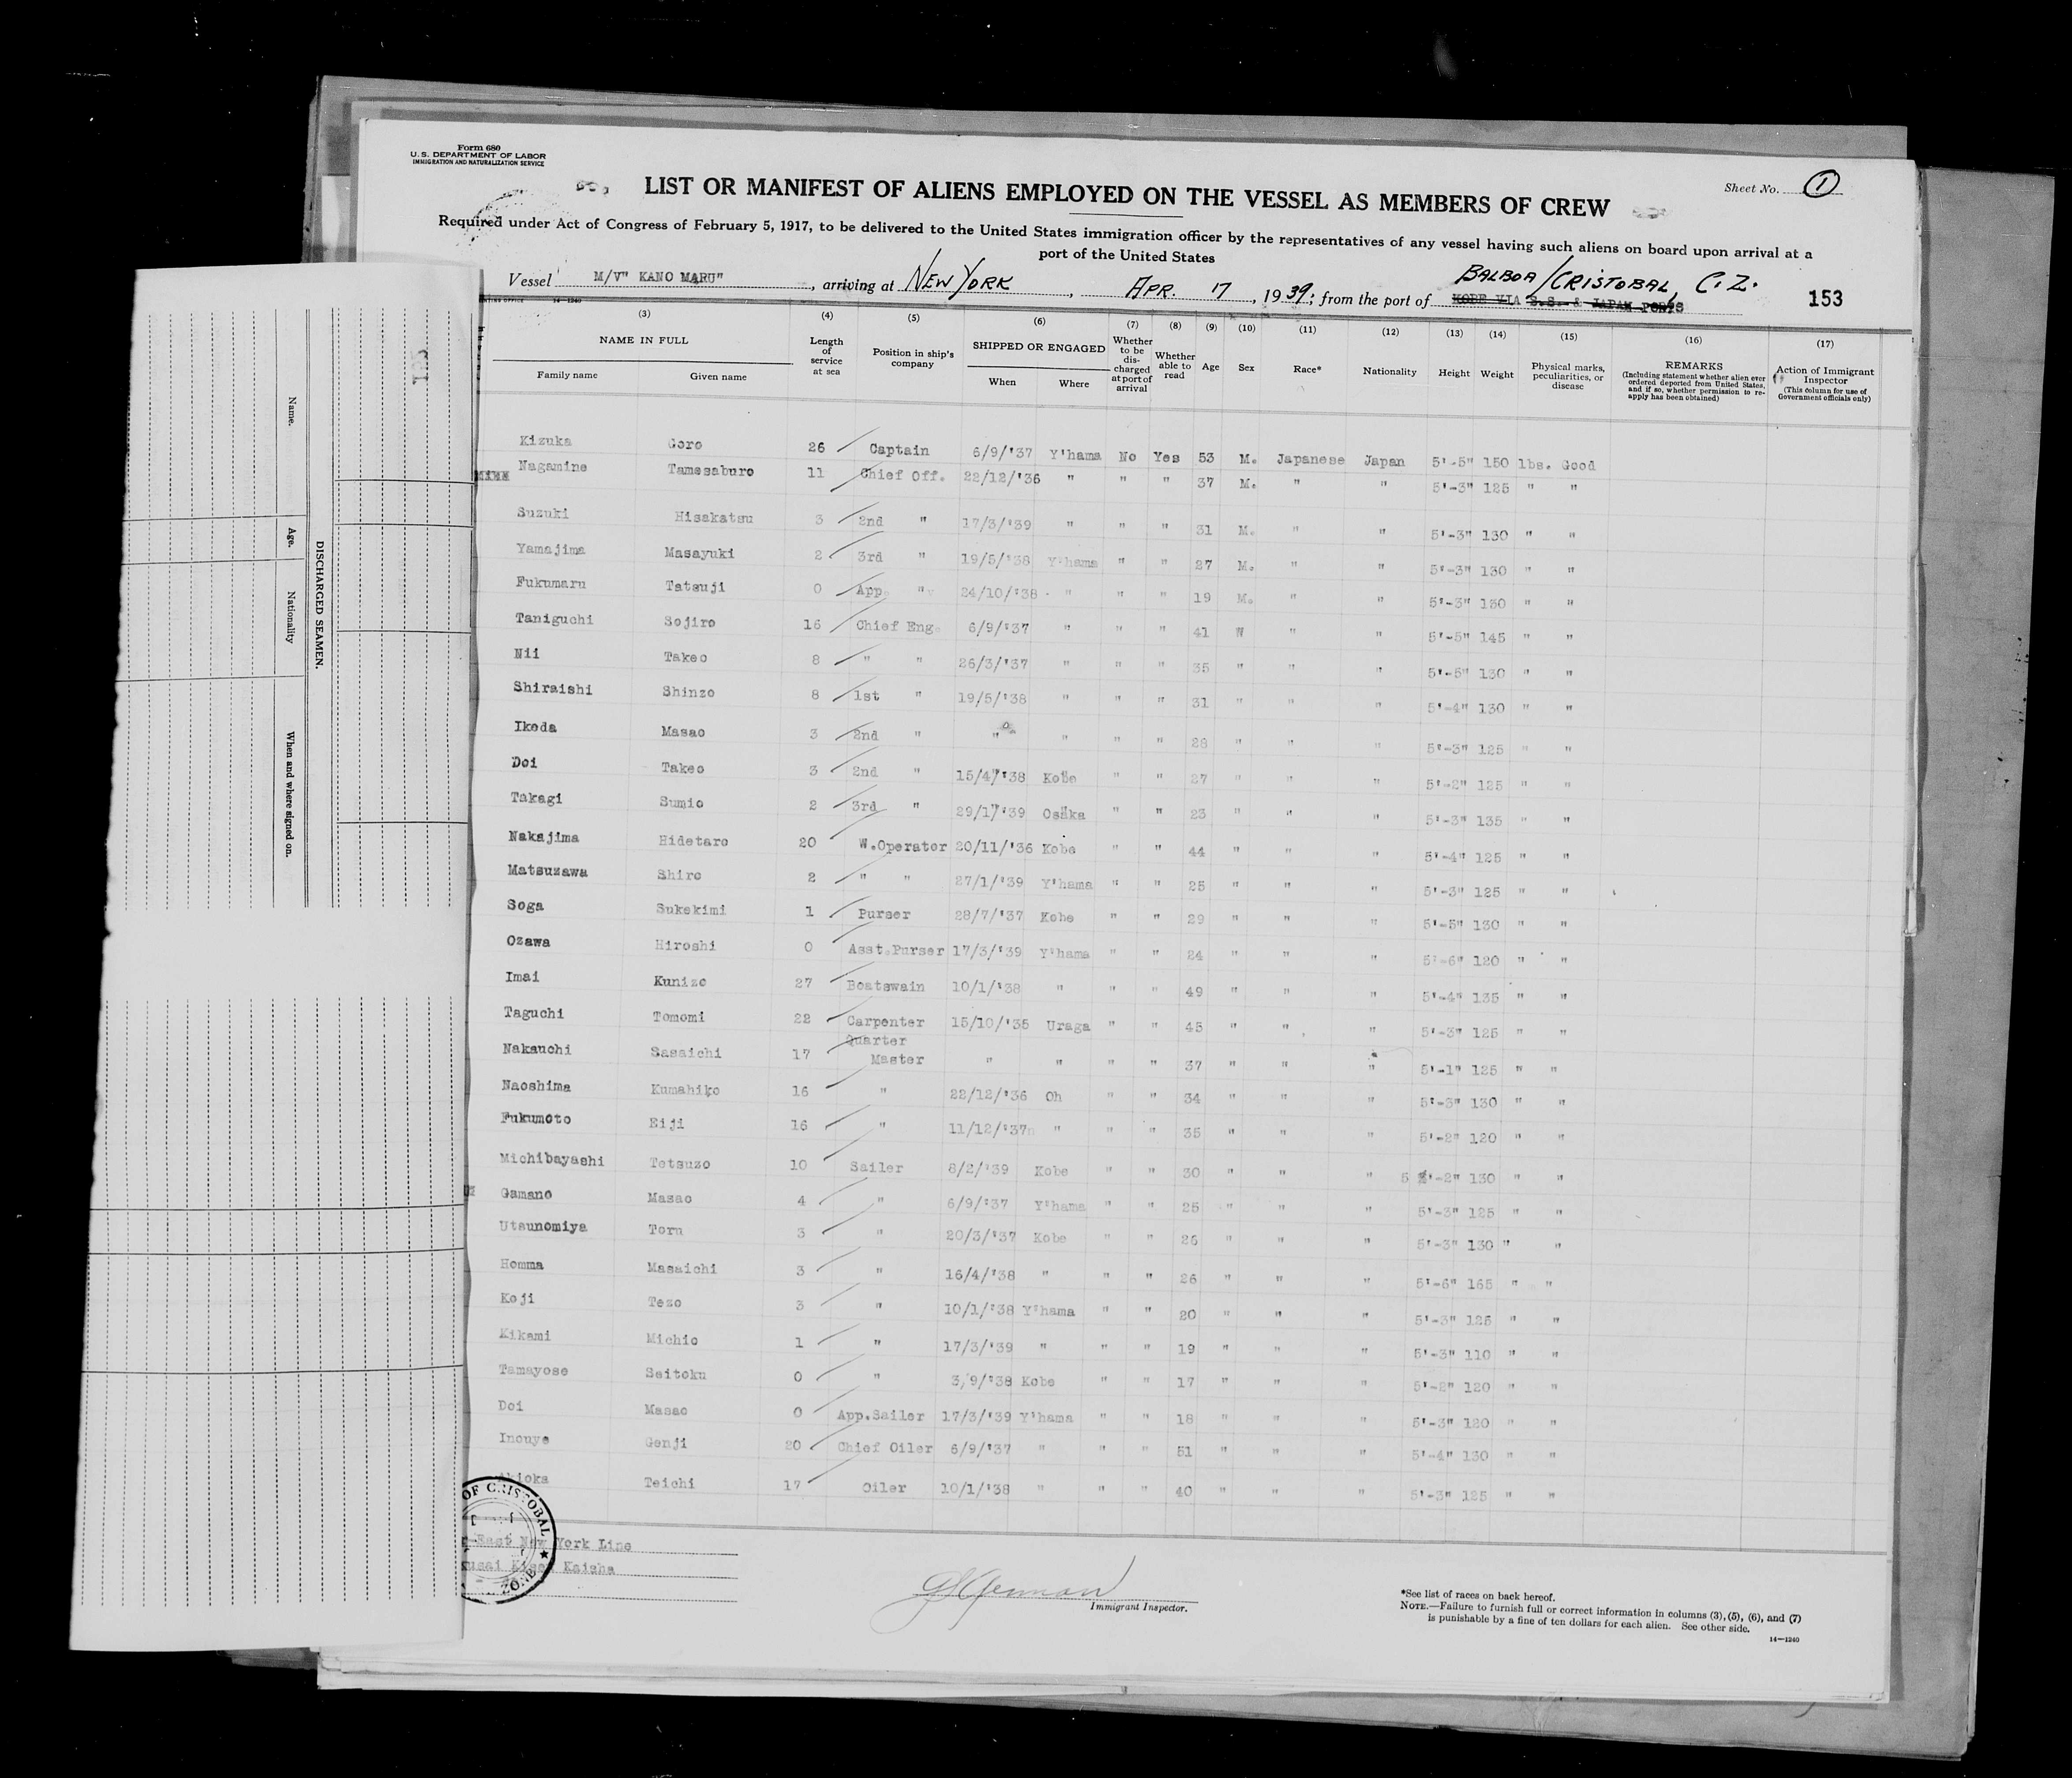 Form 680
U.S. DEPARTMENT OF LABOR
IMMIGRATION AND NATURALIZATION SERVICE
Sheet No. 1
LIST OR MANIFEST OF ALIENS EMPLOYED ON THE VESSEL AS MEMBERS OF CREW
Required under Act of Congress of February 5, 1917, to be delivered to the United States immigration officer by the representatives of any vessel having such aliens on board upon arrival at a
port of the United States
Vessel M/V" KANO MARU", arriving at NEW YORK, APR. 17, 1939; from the port of BALBOA/CRISTOBAL, C.Z.
KOBE VIA S.S. & JAPAN PORTS
153
14-1240
(3) (4) (5) (6) (7) (8) (9) (10) (11) (12) (13) (14) (15) (16) (17)
NAME IN FULL Family name Given name Length of service at sea Position in ship's company SHIPPED OR ENGAGED When Where Whether to be discharged at port of arrival Whether able to read Age Sex Race* Nationality Height Weight Physical marks, peculiarities, or disease REMARKS (Including statement whether alien ever ordered deported from United States, and if so, whether permission to reapply has been obtained) Action of Immigrant Inspector (This column for use of Government officials only)
Kizuka Goro 26 Captain 6/9/'37 Y'hama No Yes 53 M. Japanese Japan 5'-5" 150 lbs. Good
Nagamine Tamesaburo 11 Chief Off. 22/12/'36 " " " 37 M. " " 5'-3" 125 " "
Suzuki Hisakatsu 3 2nd " 17/3/'39 " " " 31 M. " " 5'-3" 130 " "
Yamajima Masayuki 2 3rd " 19/5/'38 Y'hama " " 27 M. " " 5'-3" 130 " "
Fukumaru Tatsuji 0 App. " 24/10/'38 " " " 19 M. " " 5'-3" 130 " "
Taniguchi Sojiro 16 Chief Eng. 6/9/'37 " " " 41 " " 5'-5" 145 " "
Nii Takeo 8 " " 26/3/'37 " " " 35 " " " 5'-5" 130 " "
Shiraishi Shinzo 8 1st " 19/5/'38 " " " 31 " " " 5'-4" 130 " "
Ikeda Masao 3 2nd " " " " " 28 " " " 5'-3" 125 " "
Doi Takeo 3 2nd " 15/4/'38 Kobe " " 27 " " " 5'-2" 125 " "
Takagi Sumio 2 3rd " 29/1/'39 Osaka " " 23 " " " 5'-3" 135 " "
Nakajima Hidetaro 20 W.Operator 20/11/'36 Kobe " " 44 " " " 5'-4" 125 " "
Matsuzawa Shiro 2 " " 27/1/'39 Y'hama " " 25 " " " 5'-3" 125 " "
Soga Sukekimi 1 Purser 28/7/'37 Kobe " " 29 " " " 5'-5" 130 " "
Ozawa Hiroshi 0 Asst.Purser 17/3/'39 Y'hama " " 24 " " " 5'-6" 120 " "
Imai Kunizo 27 Boatswain 10/1/'38 " " " 49 " " " 5'-4" 135 " "
Taguchi Tomomi 22 Carpenter 15/10/'35 Uraga " " 45 " " " 5'-3" 125 " "
Nakauchi Sasaichi 17 Quarter Master " " " " 37 " " " 5'-1" 125 " "
Naoshima Kumahiko 16 " 22/12/'36 Oh " " 34 " " " 5'-3" 130 " "
Fukumoto Eiji 16 " 11/12/'37 " " " 35 " " " 5'-2" 120 " "
Michibayashi Tetsuzo 10 Sailer 8/2/'39 Kobe " " 30 " " " 5'-2" 130 " "
Gamano Masao 4 " 6/9/'37 Y'hama " " 25 " " " 5'-3" 125 " "
Utsunomiya Toru 3 " 20/3/'37 Kobe " " 26 " " " 5'-3" 130 " "
Homma Masaichi 3 " 16/4/'38 " " " 26 " " " 5'-6" 165 " "
Koji Tezo 3 " 10/1/'38 Y'hama " " 20 " " " 5'-3" 125 " "
Kikami Michio 1 " 17/3/'39 " " " 19 " " " 5'-3" 110 " "
Tamayose Seitoku 0 " 3/9/'38 Kobe " " 17 " " " 5'-2" 120 " "
Doi Masao 0 App.Sailer 17/3/'39 Y'hama " " 18 " " " 5'-3" 120 " "
Inouye Genji 20 Chief Oiler 6/9/'37 " " " 51 " " " 5'-4" 130 " "
Teichi 17 Oiler 10/1/'38 " " " 40 " " " 5'-3" 125 " "
OF CRISTOBAL
ZONE
East New York Line
Kisen Kaisha
Immigrant Inspector.
*See list of races on back hereof.
NOTE.—Failure to furnish full or correct information in columns (3), (5), (6), and (7)
is punishable by a fine of ten dollars for each alien. See other side.
14—1240
DISCHARGED SEAMEN.
Name.
Age.
Nationality
When and where signed on.